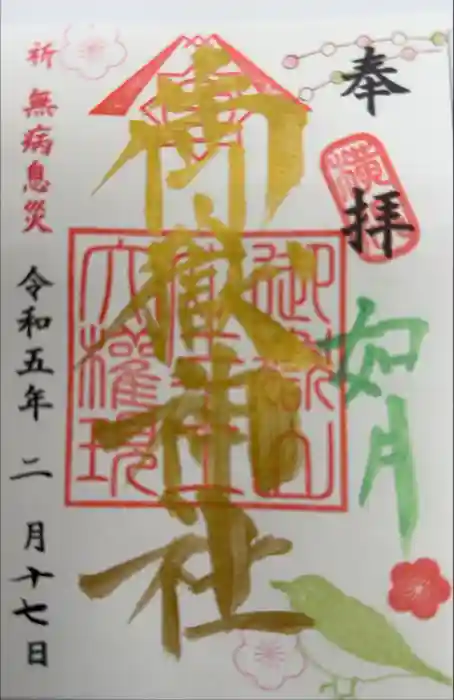 奉拝
如月
御嶽神社
祈 無病息災
令和五年 二月十七日